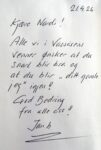 21.4.24
Kjære Nardi!
Alle vi i Vassvikens
Venner ønsker at du
snart blir bra og
at du blir – ditt gamle
jeg igjen!
God Bedring
fra alle oss!